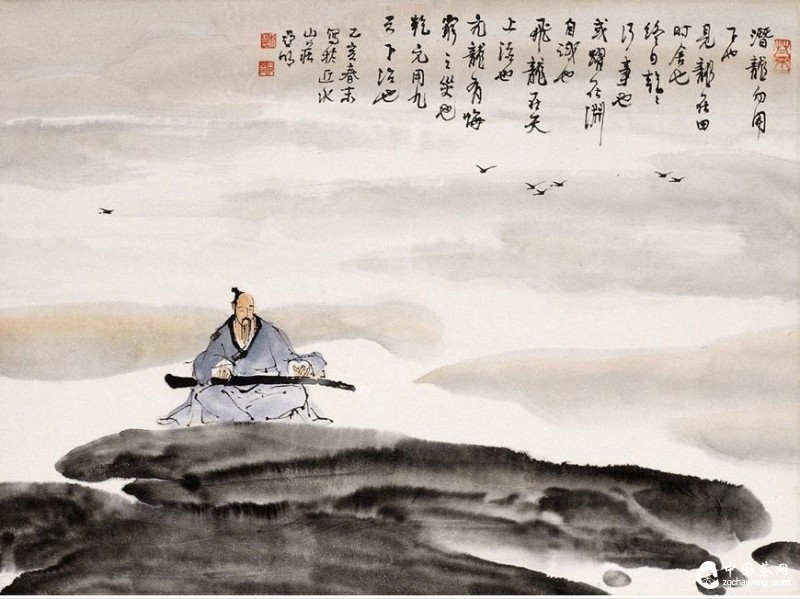 潛龍勿用
下也
見龍在田
时舍也
終日乾〻
行事也
或躍在淵
自試也
飛龍在天
上治也
亢龍有悔
窮之災也
乾元用九
天下治也
乙亥春末
寫於近水
山莊
亞明
中国茶网
zgchawang.com